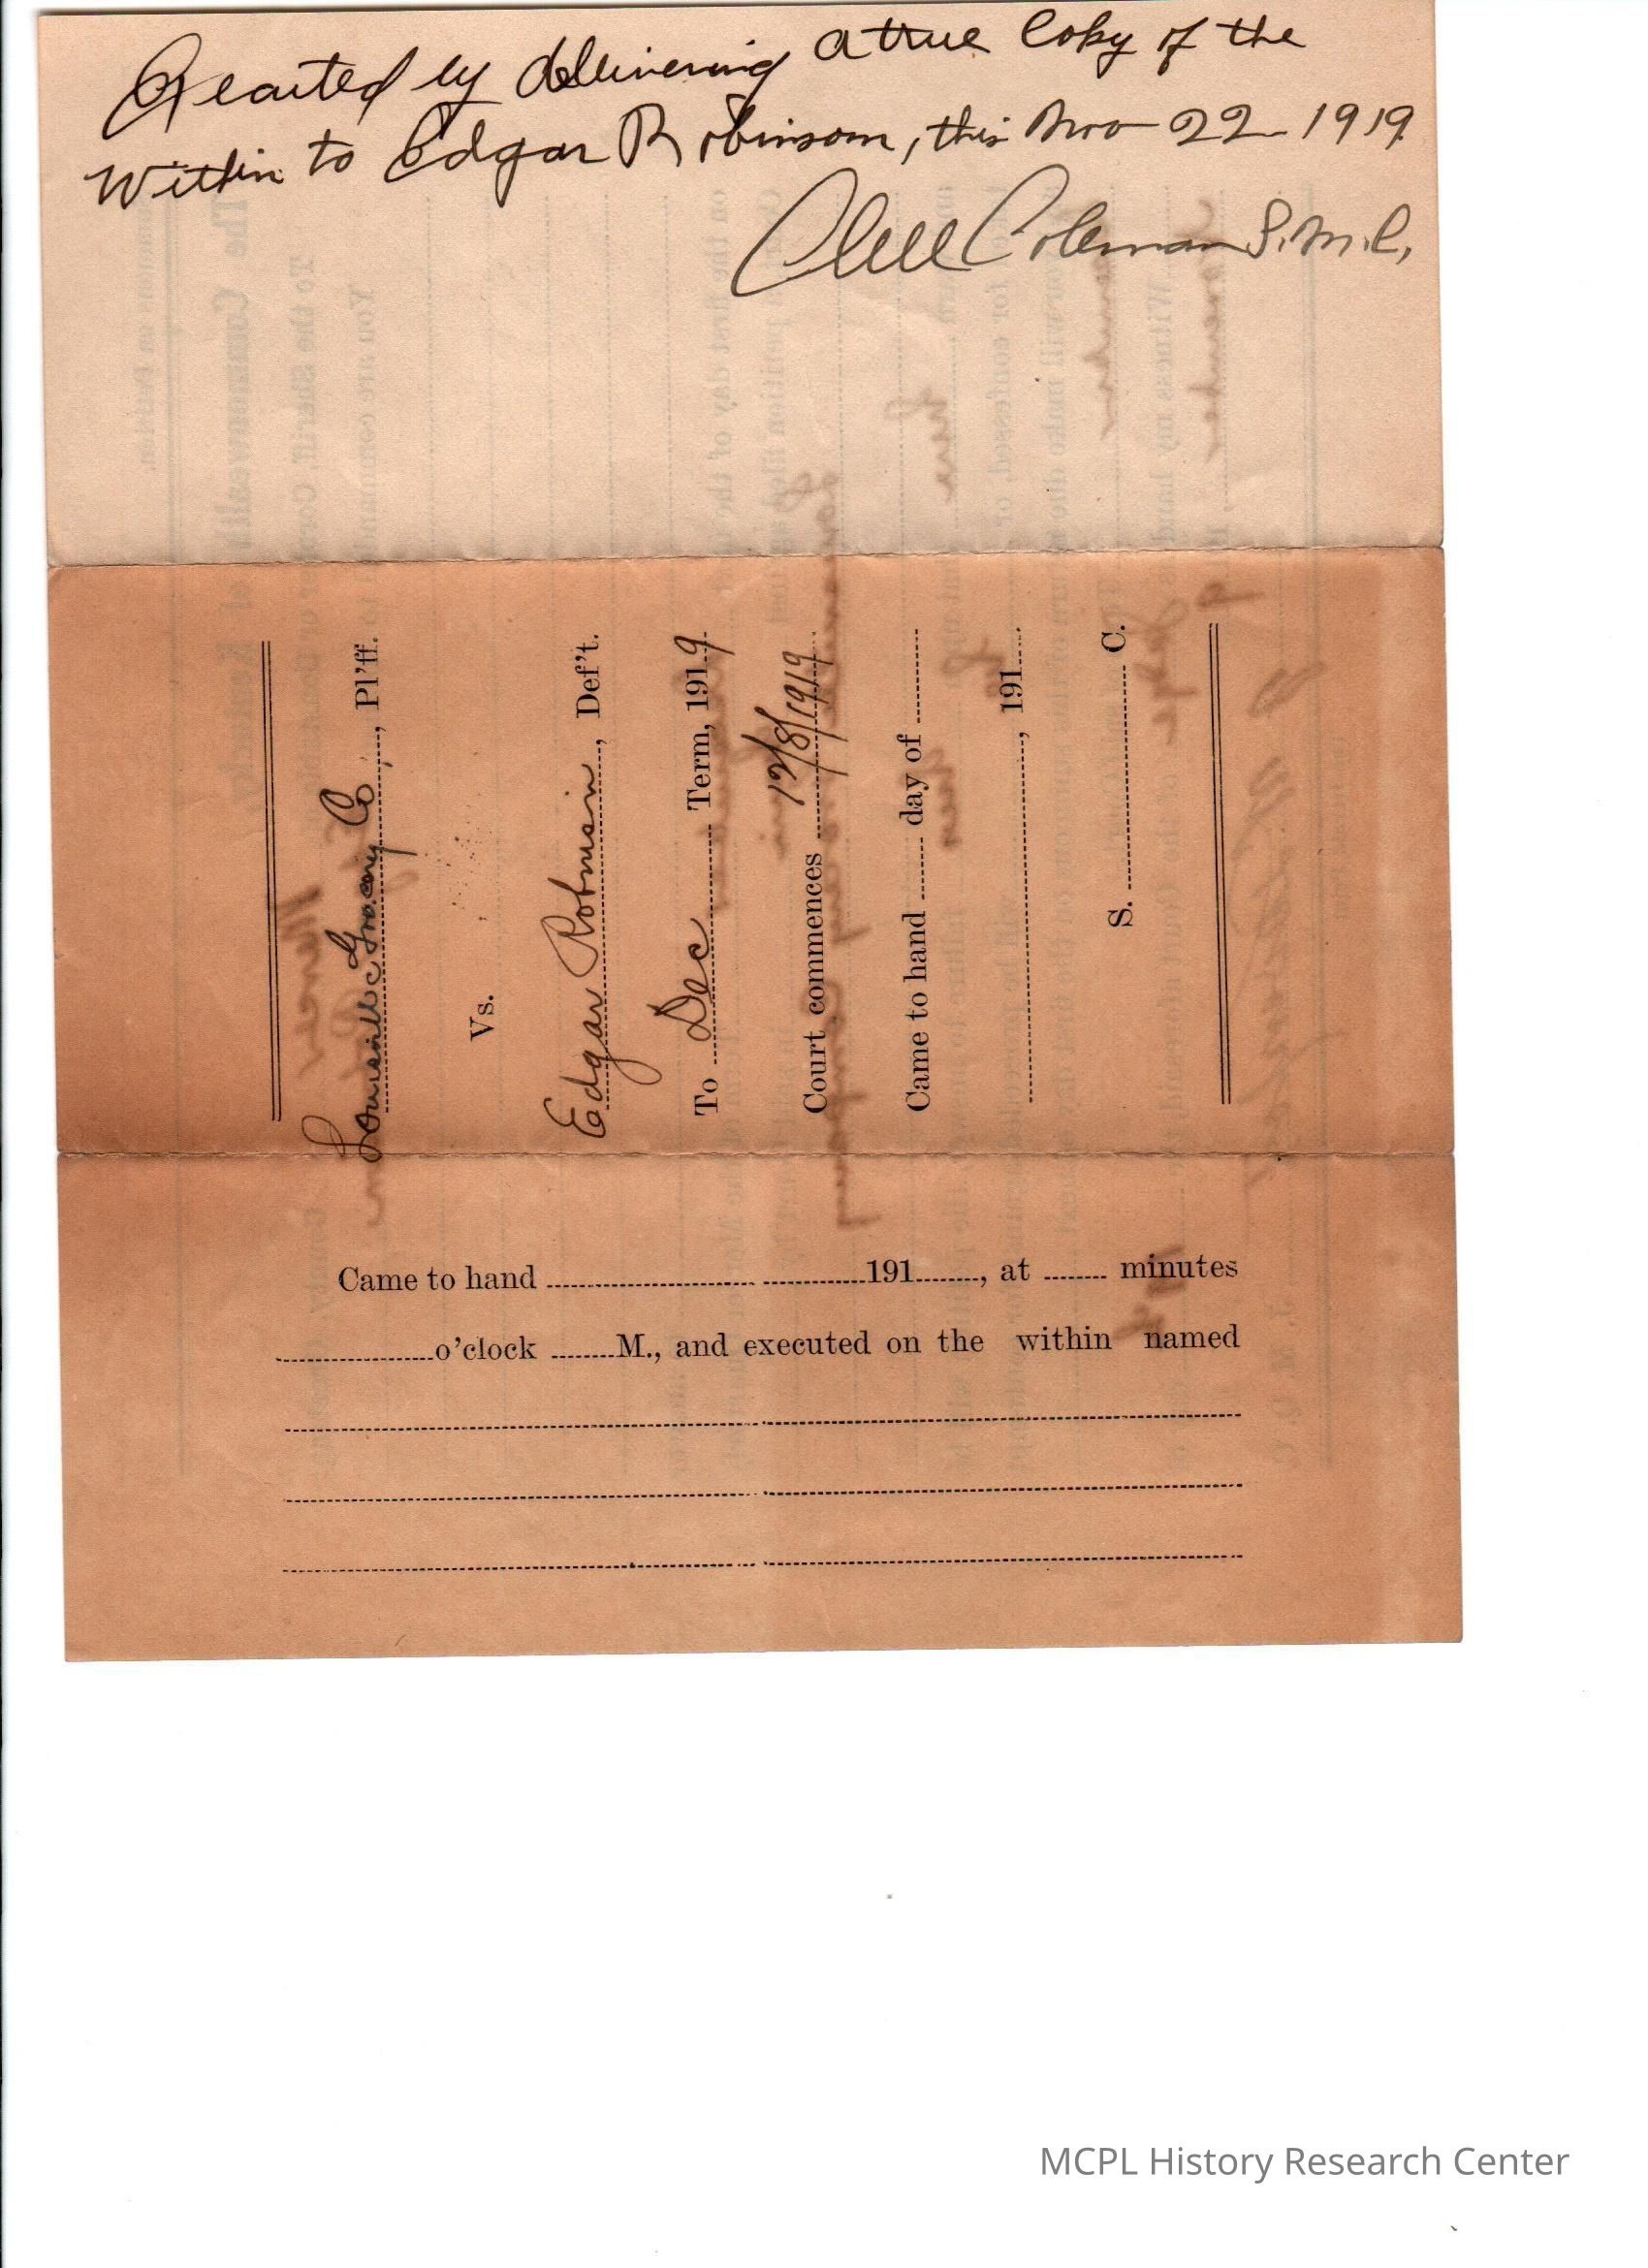 Executed by delivering a true Copy of the
Within to Edgar Robinson, this Nov 22 1919
Clell Coleman S.M.C.
Louisville Grocery Co, Pl'ff.
Vs.
Edgar Robinson, Def't.
To Dec Term, 1919
Court commences 12/8/1919
Came to hand day of
, 191
S. C.
Came to hand 191, at minutes
o'clock M., and executed on the within named
MCPL History Research Center